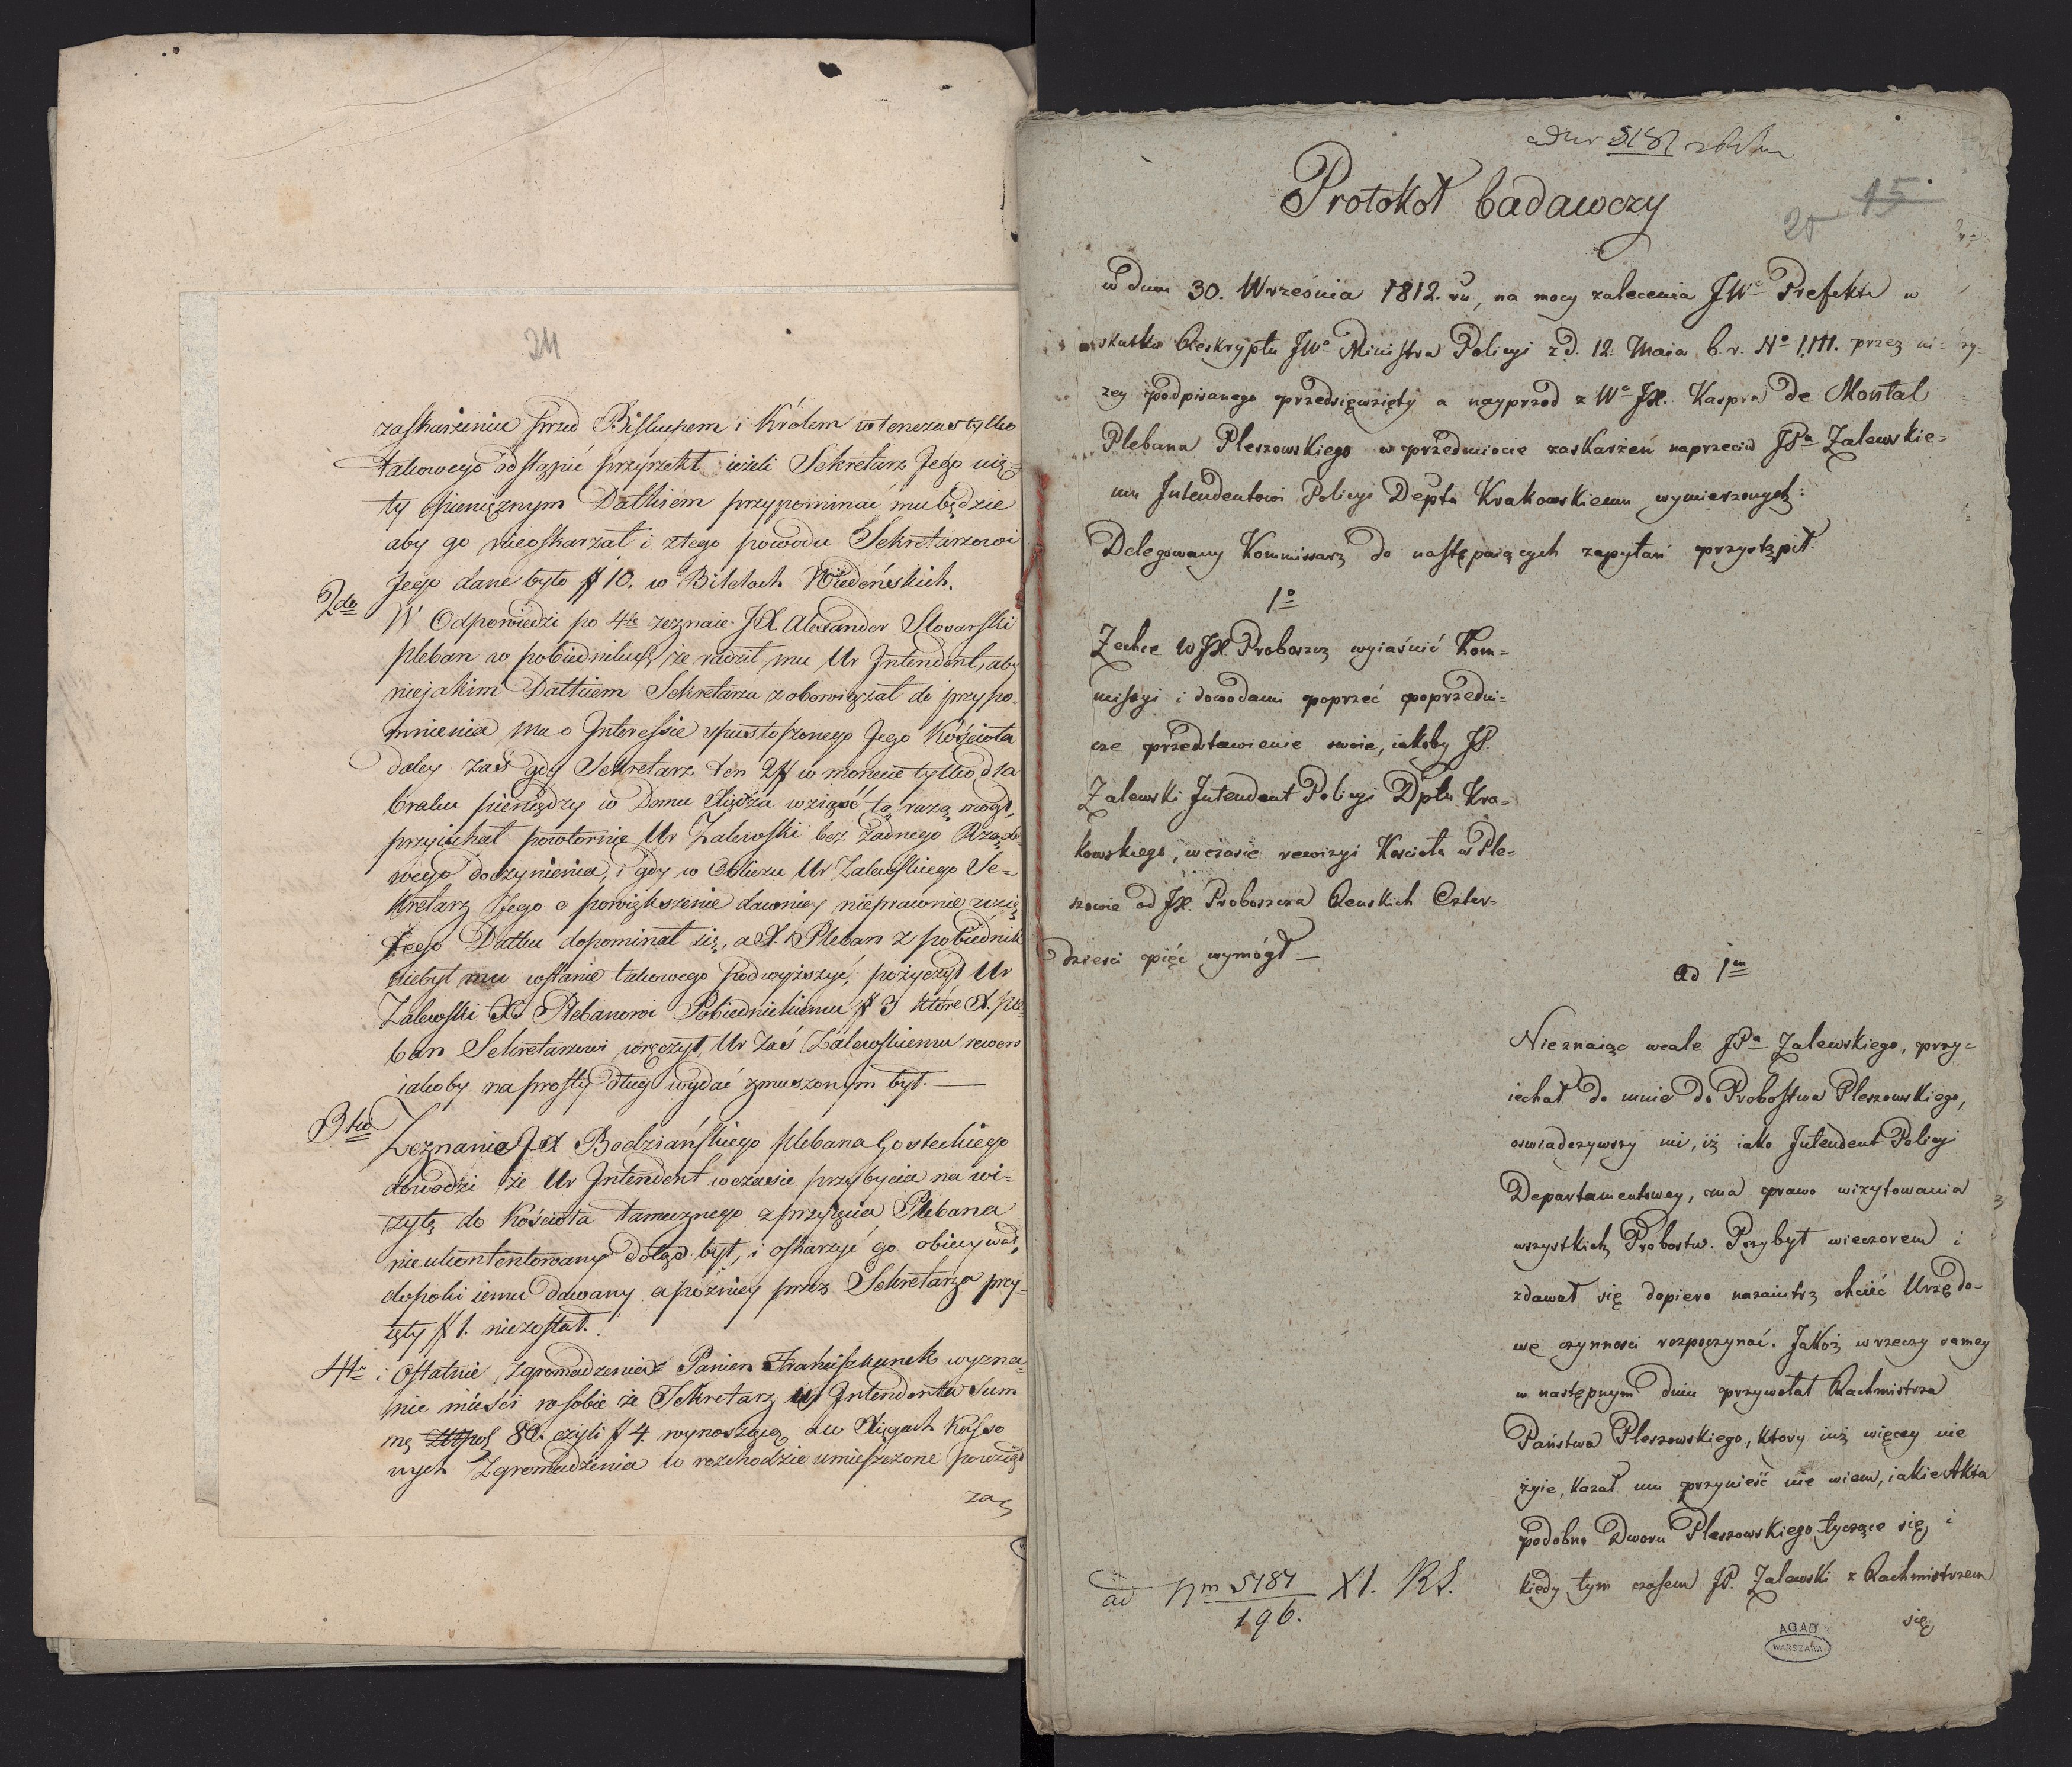 24
zaskarżeniu przed Biskupem i Królem wtenczas tylko
takowego odstąpić przyrzekł ieżeli Sekretarz Jego uię-
ty pieniężnym Datkiem przypominać mu będzie
aby go nieoskarzał i ztego powodu Sekretarzowi
Jego dane było # 10. w Biletach Wiedeńskich.
2do W Odpowiedzi po 4te zeznaie JX. Alexander Slosarski
pleban w pobiedniku, że radził mu Ur Intendent, aby
niejakim Datkiem Sekretarza zobowiązał do przypo-
mnienia mu o Interessie spustoszonego Jego Kościoła
daley zaś gdy Sekretarz ten 2# w monecie tylko dla
braku pieniędzy w Domu Xiędza wziąść tą razą mógł,
przyiechał powtornie Ur Zalewski bez żadnego Rządo
wego doczynienia, i gdy w Obliczu Ur Zalewskiego Se-
kretarz Jego o powiększenie dawniey nieprawnie wzię
tego Datku dopominał się, a X. Pleban z pobiednik
niebył mu wstanie takowego podwyższyć, pożyczył Ur
Zalewski Xu Plebanowi Pobiednickiemu # 3 które X. ple-
ban Sekretarzowi wręczył, Ur zaś Zalewskiemu rewers
iakoby na prosty dług wydać zmuszonym był. —
3tio Zeznanie JX Bodziańskiego plebana Gosteckiego
dowodzi że Ur Intendent wczasie przybycia na wi-
zytę do Kościoła tamecznego z przyięcia Plebana
nieukontentowany dotąd był, i oskarzyć go obiecywał,
dopoki iemu dawany a poźniey przez Sekretarza przy-
ięty # 1. niezostał.
4te i Ostatnie Zgromadzenia Panien Franciszkanek wyzna-
nie mieści wsobie że Sekretarz Ur Intendenta Sum
mę 80. czyli # 4. wynoszącą a w Xięgach Kasso
wych Zgromadzenia w rozchodzie umieszczone powziął
za
5787
Protokoł badawczy
15
20
w dniu 30. Września 1812. ru, na mocy zalecenia JWo Prefekta w
skutku Reskryptu JWo Ministra Policyi z d. 12. Maia b. r. No 1,111. przez ni-
zey podpisanego przedsięwzięty a nayprzod z Wo JX. Kaspra de Montal
Plebana Pleszowskiego w przedmiocie zaskarżeń naprzeciw JPa Zalewskie-
mu Intendentowi Policyi Depta Krakowskiemu wymierzonych:
Delegowany Kommissarz do następuiących zapytań przystąpił:
1o
Zechce WJX. Proboszcz wyiaśnić Kom-
missyi i dowodami poprzeć poprzedni-
cze przedstawienie swoie, iakoby JP.
Zalewski Intendent Policyi Dptu Kra-
kowskiego, wczasie rewizyi Kościoła w Ple-
szowie od JX. Proboszcza Reńskich Czter-
dzieści pięć wymógł —
ad 1m
Nieznaiąc wcale JPa Zalewskiego, przy-
iechał do mnie do Probostwa Pleszowskiego,
oswiadczywszy mi, iż iako Intendent Policyi
Departamentowey, ma prawo wizytowania
wszystkich Probostw. Przybył wieczorem i
zdawał się dopiero nazaiutrz chcieć Urzędo-
we czynnosci rozpoczynać. Jakoż w rzeczy samey
w następnym dniu przywołał Rachmistrza
Państwa Pleszowskiego, ktory iuż więcey nie
żyie, kazał mu przynieść nie wiem, iakie Akta
podobno Dworu Pleszowskiego tyczące się, i
kiedy tym czasem JP. Zalewski z Rachmistrzem
się
ad Nm 5787 XI. RS.
196.
AGAD
WARSZAWA